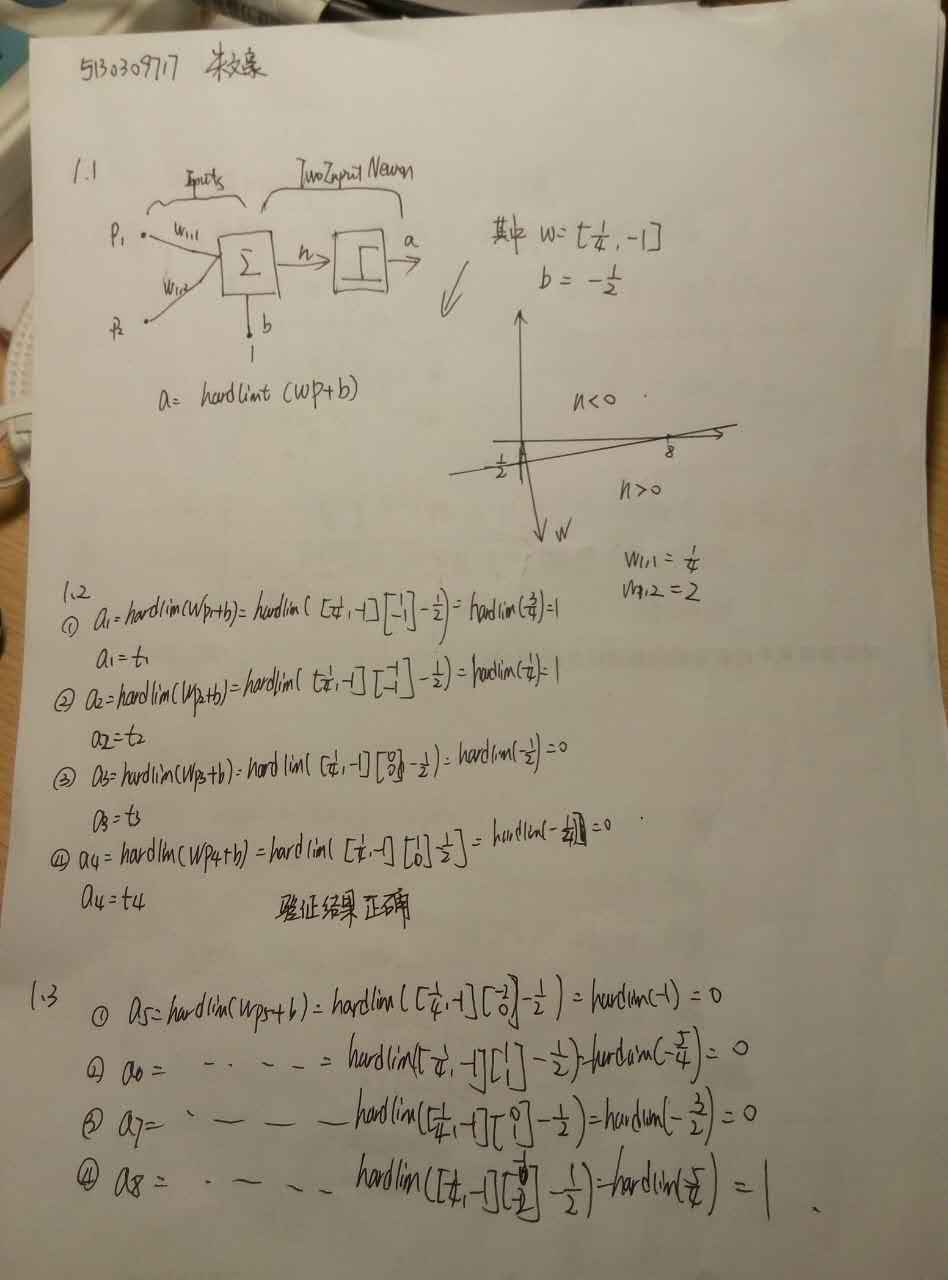 5130309717 朱文豪
1.1
Inputs
Two Input Neuron
P₁
w₁,₁
Σ
n
a
w₁,₂
P₂
b
1
a= hardlimt (wp+b)
其中 w= [1/4, -1]
b = -1/2
n<0
8
-1/2
n>0
W
w₁,₁ = 1/4
w₁,₂ = 2
1.2
① a₁=hardlim(Wp₁+b)=hardlim( [1/4, -1] [1 -1] -1/2)= hardlim(3/4)=1
a₁=t₁
② a₂=hardlim(Wp₂+b)=hardlim( [1/4, -1] [-1 -1] -1/2)=hardlim(1/4)=1
a₂=t₂
③ a₃=hardlim(Wp₃+b)=hardlim( [1/4, -1] [0 0] -1/2)=hardlim(-1/2)=0
a₃=t₃
④ a₄=hardlim(Wp₄+b) =hardlim( [1/4, -1] [1 0] -1/2] = hardlim(-1/4) =0
a₄=t₄
验证结果正确
1.3
① a₅=hardlim(Wp₅+b) = hardlim( [1/4, -1] [-2 0] -1/2 ) =hardlim(-1) = 0
② a₆= · - - - = hardlim([1/4, -1] [1 1] -1/2)=hardlim(-5/4)= 0
③ a₇= · — — — hardlim([1/4, -1] [0 1] -1/2)=hardlim(-3/2)=0
④ a₈= · — - - hardlim([1/4, -1] [-1 -2] -1/2)=hardlim(5/4) = 1